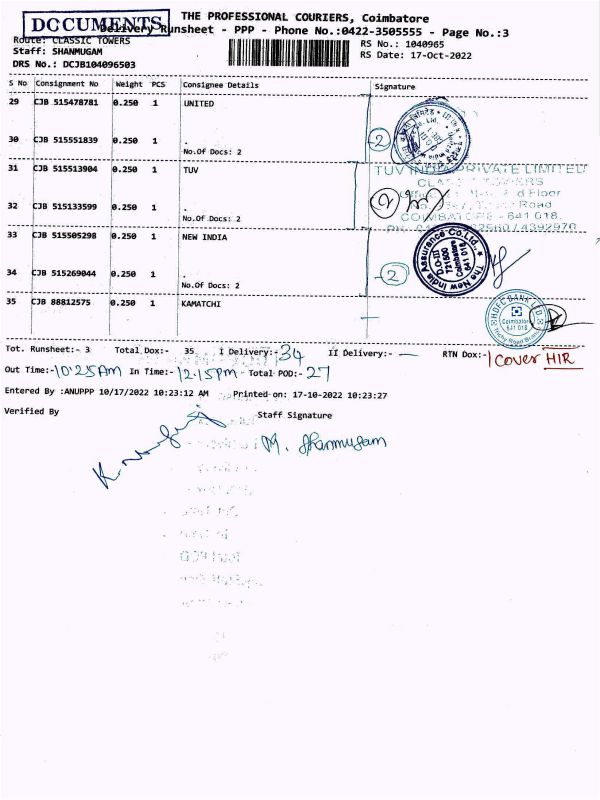 DOCUMENTS
THE PROFESSIONAL COURIERS, Coimbatore
Delivery Runsheet - PPP - Phone No.:0422-3505555 - Page No.:3
Route: CLASSIC TOWERS
RS No.: 1040965
Staff: SHANMUGAM
RS Date: 17-Oct-2022
DRS No.: DCJB104096503
S No Consignment No Weight PCS Consignee Details Signature
29 CJB 515478781 0.250 1 UNITED
30 CJB 515551839 0.250 1 .
No.Of Docs: 2
2
31 CJB 515513904 0.250 1 TUV
TUV INDIA PRIVATE LIMITED
CLASSIC TOWERS
Floor
32 CJB 515133599 0.250 1 .
Road
No.Of Docs: 2
2
COIMBATORE - 641 018.
33 CJB 515505298 0.250 1 NEW INDIA
The New India Assurance Co.Ltd.
D.O-III
721500
Coimbatore
641 018
34 CJB 515269044 0.250 1 .
No.Of Docs: 2
2
35 CJB 88812575 0.250 1 KAMATCHI
HDFC BANK LTD
Coimbatore
641 018
Tot. Runsheet:- 3 Total Dox:- 35 I Delivery:- 34 II Delivery:- — RTN Dox:- 1 cover HIR
Out Time:- 10.25Am In Time:- 12.15pm - Total POD:- 27
Entered By :ANUPPP 10/17/2022 10:23:12 AM Printed on: 17-10-2022 10:23:27
Verified By Staff Signature
M. Shanmugam